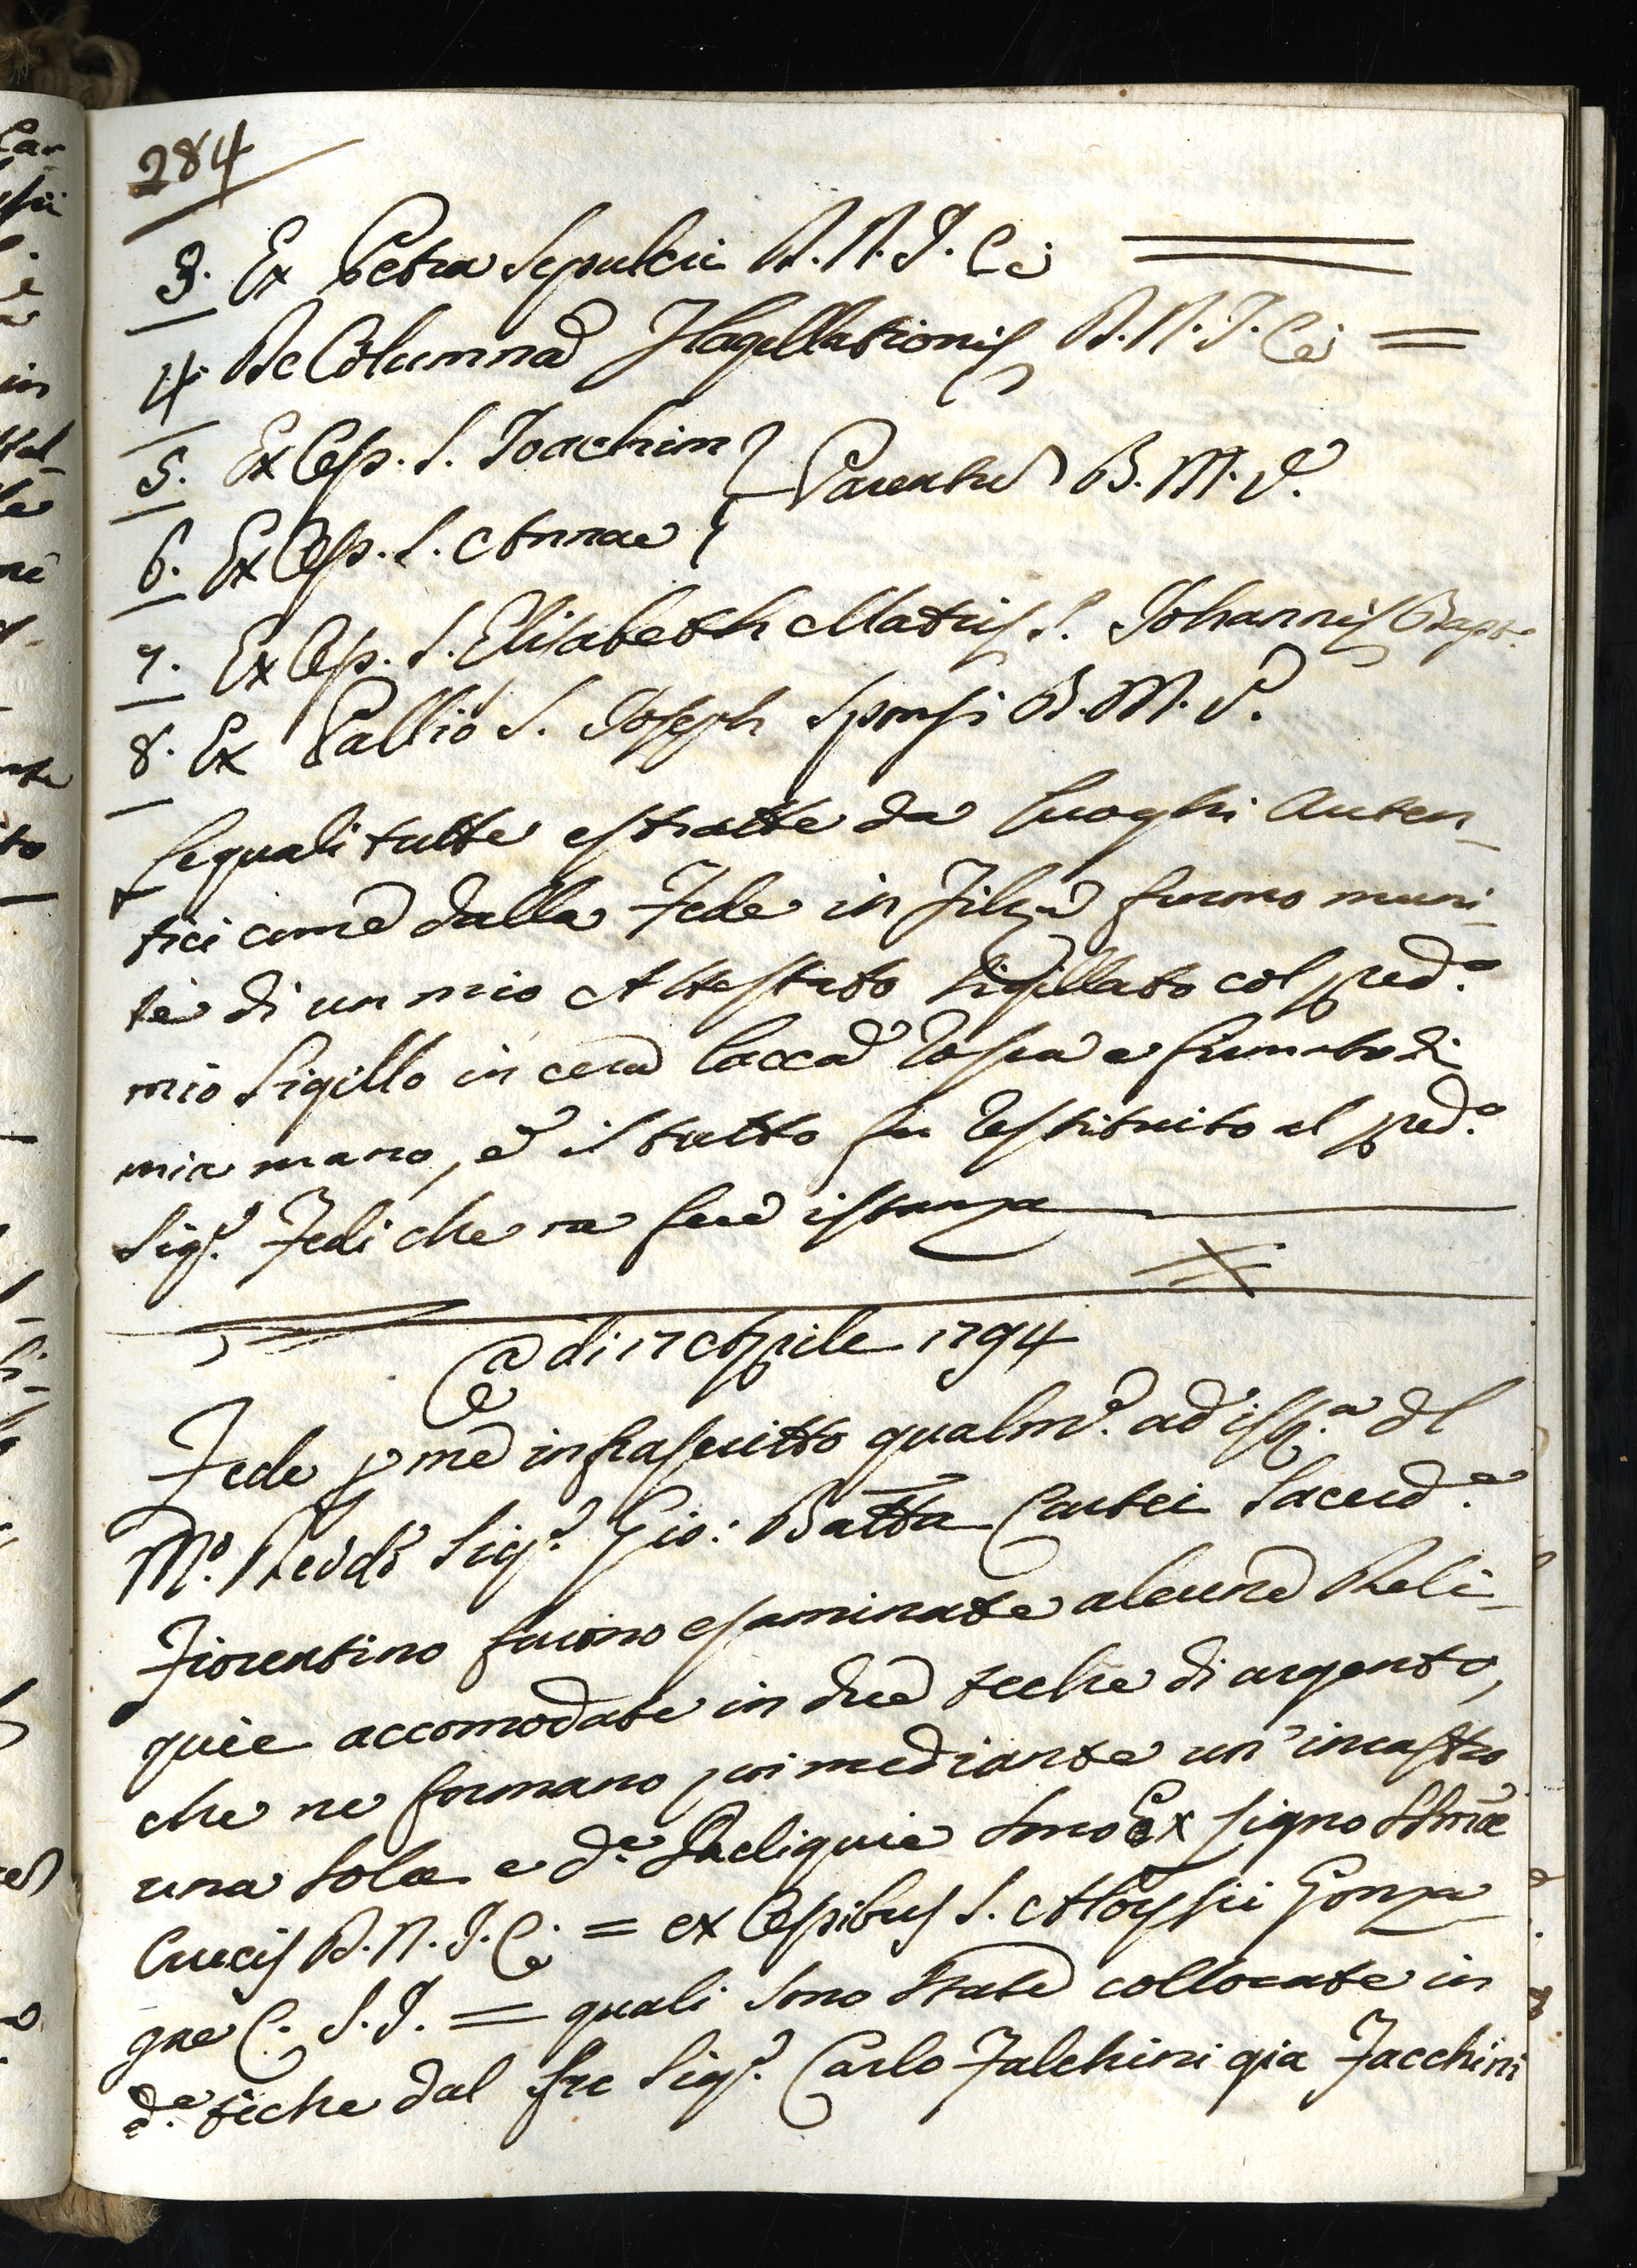 284
3. Ex Petra Sepulcri D.N.J. Ci
4. De Columna Flagellationis D.N.J. Ci
5. Ex Oss. S. Joachim
Parentu B.M.V.
6. Ex Oss. S. Annae
7. Ex Oss. S. Elisabeth Matris S. Johannis Bapt.
8. Ex Pallio S. Joseph Sponsi B.M.V.
Le quali tutte estratte da luoghi Auten-
tici come dalla Fede in Filza furono muni-
te di un mio Attestato sigillato col pred.o
mio Sigillo in cera lacca rossa e firmato di
mia mano, e il tutto fu restituito al pred.o
Sig.r Fedi che ne fece istanza
A di 17 Aprile 1794
Fede p me infrascritto qualm.e ad ist.a dl
M.o Revdo Sig.r Gio: Batta Cartei Sacerd.e
Fiorentino furono esaminate alcune Reli-
quie accomodate in due teche di argento,
che ne formano poi mediante un' incastro
una sola e d.e Reliquie sono Ex signo SSmae
Crucis D.N.J.C. = ex Ossibus S. Aloysii Gonza
gae C. S.J. = quali sono state collocate in
d.e teche dal fu Sig.r Carlo Falchini gia Facchini